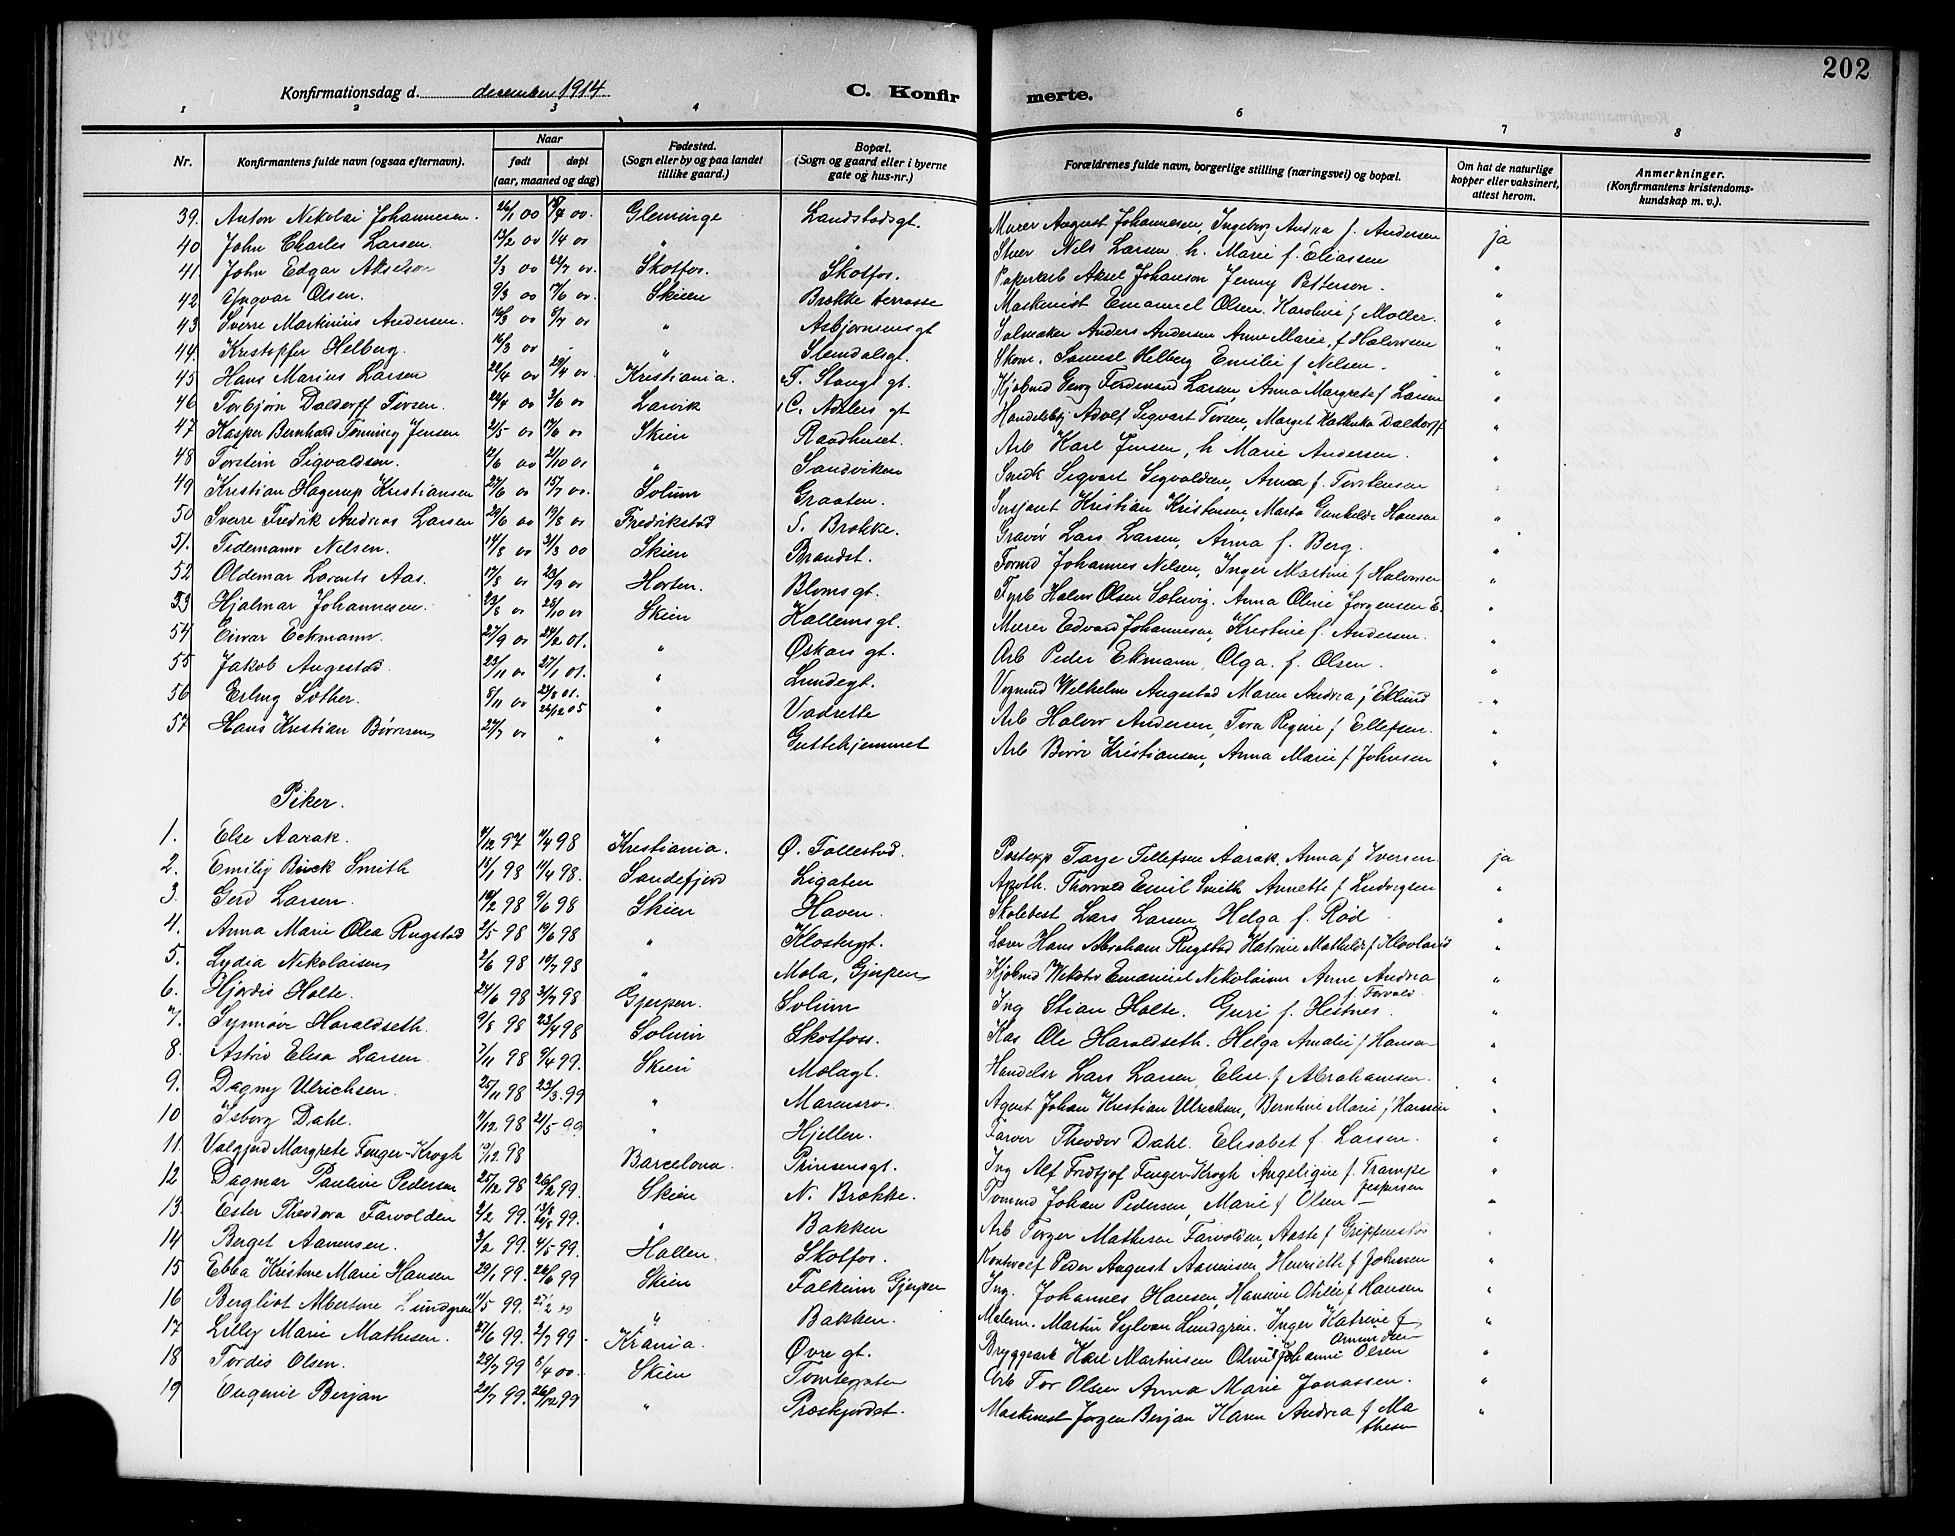 202
Konfirmationsdag d. desember 1914 C. Konfirmerte.
1 2 3 4 5 6 7 8
Nr. Konfirmantens fulde navn (ogsaa efternavn). Naar født døpt (aar, maaned og dag) Fødested. (Sogn eller by og paa landet tillike gaard.) Bopæl. (Sogn og gaard eller i byerne gate og hus-nr.) Forældrenes fulde navn, borgerlige stilling (næringsvei) og bopæl. Om hat de naturlige kopper eller vaksinert, attest herom. Anmerkninger. (Konfirmantens kristendoms-kundskap m. v.).
39. Anton Nikolai Johannesen. 26/1 00 Gleminge Landstadsgt. Murer August Johannesen, Ingeborg Andrea f. Andersen ja
40 John Charles Larsen. 13/2 00 1/4 00 " " Nils Larsen h. Marie f. Eliassen "
41. John Edgar Akselson 2/3 00 22/7 00. Skotfos. Skotfos. Papirarb Aksel Johanson Jenny Petterson. "
42. Yngvar Olsen. 9/3 00 17/6 00. Skien Brække terrasse Maskinist Emanuel Olsen. Karoline f Møller. "
43. Sverre Martinius Andersen. 16/3 00 8/7 00 " Asbjørnsensgt Salmaker Anders Andersen Anne Marie f Halvorsen "
44. Kristoffer Helberg. 16/3 00 - " Stendalsgt. Skom. Samuel Helberg Emilie f Nilsen. "
45 Hans Marius Larsen 22/4 00 29/4 00. Kristiania. F. Stangs gt. Kjøbmd Georg Ferdinand Larsen, Anna Margrete f Larsen "
46 Torbjørn Daldorff Tørsen. 22/4 00 3/6 00 Larvik C. Adelers gt Handelsbtj Adolf Sigvart Tørsen, Marget Kathinka Daldorff "
47 Kasper Bernhard Tønning Jensen 2/5 00 17/6 00 Skien Raadhuset. Arb Karl Jensen, h Marie Andersen. "
48 Torstein Sigvaldsen. 12/6 00 21/10 00 " Sandviken Smed Sigvart Sigvaldsen, Anna f. Torstensen "
49 Kristian Hagerup Kristiansen 27/6 00 15/7 00. Solum Graaten. Sersjant Kristian Kristensen, Marta Gunhilde Hansen "
50 Sverre Fredrik Andreas Larsen 29/6 00 19/8 00 Fredrikstad S. Brække. Gravør Lars Larsen, Anna f. Berg. "
51. Tidemann Nelsen. 14/8 00 31/3 00 Skien Brandst. Tomd Johannes Nelsen, Inger Martine f Halvorsen "
52 Oldemar Lorents Aas. 17/8 00 23/9 00 Horten. Blomsgt. Fyrb Halvor Olsen Sætervig. Anna Oline Jørgensen "
53 Hjalmar Johannesen. 23/8 00 28/10 00 Skien Kallemsgt. Murer Edvard Johannesen, Kristine f. Andersen. "
54 Einar Eckmann. 27/9 00 24/2 01. " Oskars gt. Arb Peder Ekmann, Olga f. Olsen. "
55 Jakob Augestad. 23/11 00 27/1 01. " Lundegt. Vognmd Wilhelm Augestad Maren Andrea f Eklund "
56 Erling Sæther. 5/11 00 25/8 01. 26/12 05 " Vadrette Arb Halvor Andersen, Tora Regine f Ellefsen. "
57 Hans Kristian Børresen 27/7 00 " " Guttehjemmet Arb Børre Kristiansen, Anna Marie f Johnsen "
Piker.
1. Else Aarak. 17/12 97 11/4 98 Kristiania. Ø. Follestad. Postexp Tarje Tellefsen Aarak, Anna f Iversen ja
2. Emilij Buck Smith 13/1 98 11/4 98. Sandefjord Ligaten Apoth. Thorvald Emil Smith Annette f Ludvigsen "
3. Gerd Larsen. 18/2 98 9/6 98 Skien Haven. Skolebest Lars Larsen, Helga f. Rød "
4. Anna Marie Olea Rugstad 2/5 98 19/6 98 " Klostergt. Lærer Hans Abraham Rugstad Katrine Mathilde f Hovland "
5. Lydia Nikolaisen 2/6 98 10/7 98 " Mæla, Gjerpen Kjøbmd Viktor Emanuel Nikolaisen Anne Andrea f. Torvald. "
6. Hjørdis Holte. 24/6 98 31/7 98 Gjerpen. Solum Ing Stian Holte. Guri f. Hestnes. "
7. Synnøve Haraldseth. 9/8 98 23/4 98 Solum Skotfoss. Kas Ole Haraldseth. Helga Amalie f Hansen "
8. Astrid Elisa Larsen. 7/11 98 9/4 99. Skien Mælagt. Handelsr Lars Larsen, Elise f Abrahamsen. "
9. Dagny Ulrichsen. 25/11 98 23/3 99 " Marensro. Agent Johan Kristian Ulrichsen, Berntine Marie f Hansen "
10 Isborg Dahl. 11/12 98 21/5 99. " Hjellen. Farver Theodor Dahl. Elisabet f. Larsen. "
11. Valgjerd Margrete Fenger-Krogh 19/12 98 Barcelona. Prinsensgt. Ing Alf Fridtjof Fenger-Krogh Angeligine f. Trampe Jespersen "
12 Dagmar Pauline Pedersen 25/12 98 26/2 99. Skien N. Brække. Tomd Johan Pedersen, Marie f Olsen "
13. Ester Theodora Farvolden 2/2 99. 13/8 20/8 99. " Bakken Arb Torger Mathisen Farvolden, Aaste f Grippenstøe "
14 Berget Aanensen. 3/2 99. 4/5 99. Hollen. Skotfos. Kontorchef Peder August Aanensen Henriette f Johnsen "
15 Ebba Kristine Marie Hansen 29/1 99. 26/6 99 Skien Falkum Gjerpen Ing. Johannes Hansen, Hansine Otilie f Hansen "
16 Bergliot Albertine Lundgren 11/5 99. 27/2 00 " Bakken. Malerm. Martin Sylvan Lundgren. Inger Katrine f "
17 Lilly Marie Mathisen. 27/6 99. 2/7 99 Krania. Øvre gt. Bryggeark Karl Martinisen Oline Johanne Olsen "
18 Tordis Olsen. 29/7 99 8/4 00. Skien Tomtegaten Arb Tor Olsen Anna Marie Jonassen. "
19 Eugenie Berjan 20/7 99. 26/12 99 " Præskjordet. Maskinest Jørgen Berjan Karen Andrea f Mathesen "